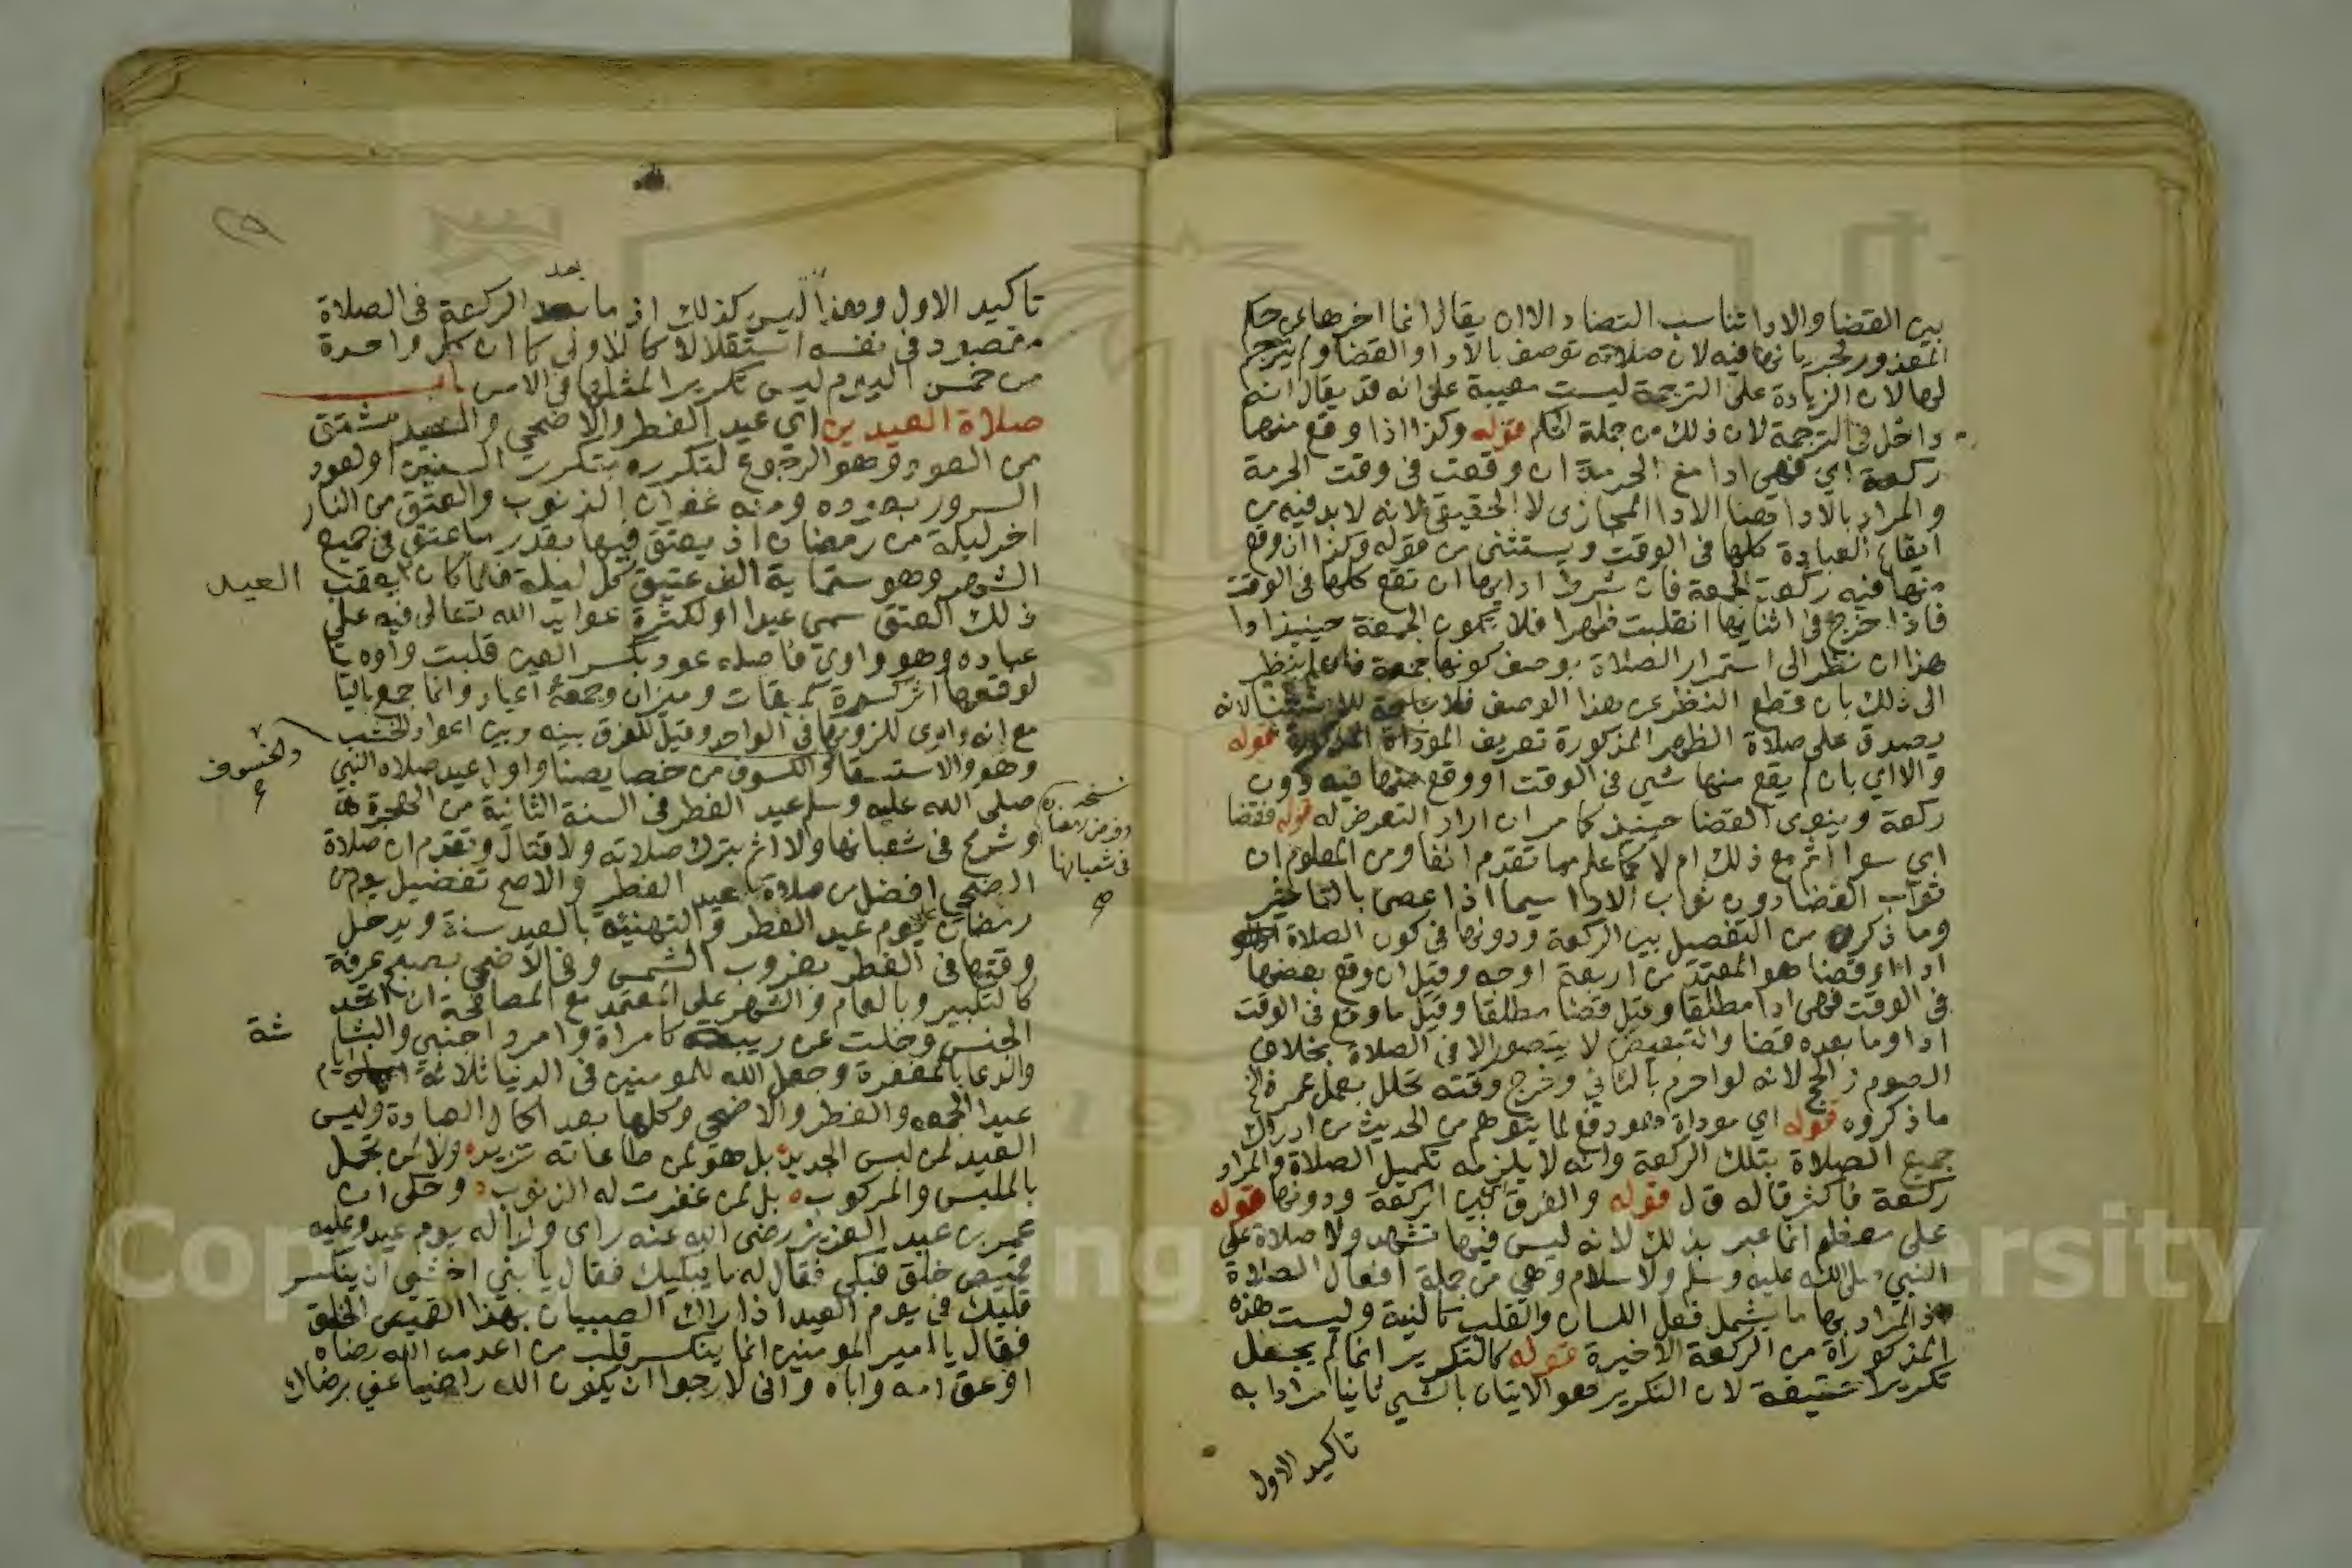 بين القضا والادا تناسب التضاد الا ان يقال انما اخرها عن حكم
المعذور لجريانها فيه لان صلاته توصف بالادا والقضا ولم يترجم
لها لان الزيادة على الترجمة ليست معيبة على انه قد يقال انه
داخل في الترجمة لان ذلك من جملة قوله وكذا اذا وقع منها
ركعة اي فهي ادا مع الحرمة ان وقعت في وقت الحرمة
والمراد بالادا هنا الادا المجازى لا الحقيقي لانه لا بد فيه من
ايقاع العبادة كلها في الوقت ويستثنى من قوله وكذا ان وقع
منها فيه ركعة الجمعة فان شرط ادايها ان تقع كلها في الوقت
فاذا خرج في اثنايها انقلبت ظهرا فلا تكون الجمعة حينيذ ادا
هذا ان نظر الى استمرار الصلاة بوصف كونها جمعة فان لم ينظر
الى ذلك بان قطع النظر عن هذا الوصف فلا حاجة للاستثنا لانه
يصدق على صلاة الظهر المذكورة تعريف الموداة المذكورة قوله
والا اي بان لم يقع منها شي في الوقت او وقع منها فيه دون
ركعة وينوى القضا حينيذ كما مر ان اراد التعرض له قوله فقضا
اي سوا اثم مع ذلك ام لا كما علم مما تقدم انفا ومن المعلوم ان
ثواب القضا دون ثواب الادا سيما اذا عصى بالتاخير
وما ذكره من التفصيل بين الركعة ودونها في كون الصلاة
ادا او قضا هو المعتمد من اربعة اوجه وقيل ان وقع بعضها
في الوقت فهي ادا مطلقا وقيل قضا مطلقا وقيل ما وقع في الوقت
ادا وما بعده قضا والتبعيض لا يتصور الا في الصلاة بخلاف
الصوم والحج لانه لو احرم بالثاني وخرج وقته تحلل بعمل عمرة الخ
ما ذكروه قوله اي موداة وهو دفع لما يتوهم من الحديث من ادراك
جميع الصلاة بتلك الركعة وانه لا يلزمه تكميل الصلاة والمراد
ركعة فاكثر قاله ق ل قوله والفرق بين الركعة ودونها قوله
على معظم انما عبر بذلك لانه ليس فيها تشهد ولا صلاة على
النبي صلى الله عليه وسلم ولا سلام وهي من جملة افعال الصلاة
اذ المراد بها ما يشمل فعل اللسان والقلب كالنية وليست هذه
المذكورات من الركعة الاخيرة قوله كالتكرير انما لم يجعل
تكريرا حقيقة لان التكرير هو الاتيان بالشي ثانيا مرادا به
تاكيد الاول
تاكيد الاول وهذا ليس كذلك اذ ما بعد الركعة في الصلاة
بعد
مقصود في نفسه استقلالا كالاولى كما ان كل واحدة
من خمس اليوم ليس تكريرا لمثلها في الامس باب
صلاة العيدين اي عيد الفطر والاضحي والعيد مشتق
من العود وهو الرجوع لتكرره بتكرر السنين او لعود
السرور بعوده ومنه غفران الذنوب والعتق من النار
اخر ليلة من رمضان اذ يعتق فيها بقدر ما عتق في جميع
الشهر وهو ستماية الف عتيق كل ليلة فلما كان يعقب
العيد
ذلك العتق سمي عيدا او لكثرة عوايد الله تعالى فيه على
عباده وهو واوي فاصله عود بكسر العين قلبت واوه يا
لوقوعها اثر كسرة كميقات وميزان وجمعه اعياد وانما جمع باليا
مع انه واوى للزومها في الواحد وقيل للفرق بينه وبين اعواد الخشب
وهو والاستسقا والكسوف من خصايصنا واول عيد صلاه النبي
والخسوف
صلى الله عليه وسلم عيد الفطر في السنة الثانية من الهجرة
وشرع في شعبانها ولا اثم بترك صلاته ولا قتال وتقدم ان صلاة
نسخه
وفرض رمضان
في شعبانها
الاضحي افضل من صلاة عيد الفطر والاصح تفضيل يوم من
رمضان على يوم عيد الفطر والتهنية بالعيد سنة ويدخل
وقتها في الفطر بغروب الشمس وفي الاضحي بصبح عرفة
كالتكبير وبالعام والشهر على المعتمد مع المصافحة ان اتحد
الجنس وخلت عن ريبة كامراة وامرد اجنبي والبشا
شة
والدعا بالمغفرة وجعل الله للمومنين في الدنيا ثلاثة ايام
عيد الجمعه والفطر والاضحي وكلها بعد اكمال العبادة وليس
العيد لمن لبس الجديد بل هو لمن طاعاته تزيد ولا لمن تجمل
بالملبس والمركوب بل لمن غفرت له الذنوب وحكى ان
عمر بن عبد العزيز رضى الله عنه راى ولدا له يوم عيد وعليه
قميص خلق فبكى فقال له ما يبكيك فقال يا بني اخشى ان ينكسر
قلبك في يوم العيد اذا راك الصبيان بهذا القميص الخلق
فقال يا امير المومنين انما ينكسر قلب من اعدمه الله رضاه
او عق امه واباه واني لارجوا ان يكون الله راضيا عني برضاك